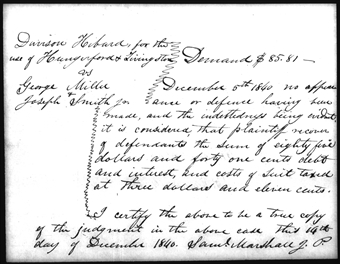 Davison Hibard for the
use of Hungerford & Livingston Demand $85.81 —
vs
George Miller December 5th 1840 no appear
Joseph + Smith jr ance or defence having been
made, and the indebtedness being evident
it is considered, that plaintiff recover
of defendants the sum of eighty five
dollars and forty one cents debt
and interest, and costs of suit taxed
at three dollars and eleven cents.
I certify the above to be a true copy
of the judgment in the above case this 19th
day of December 1840. Saml Marshall J. P